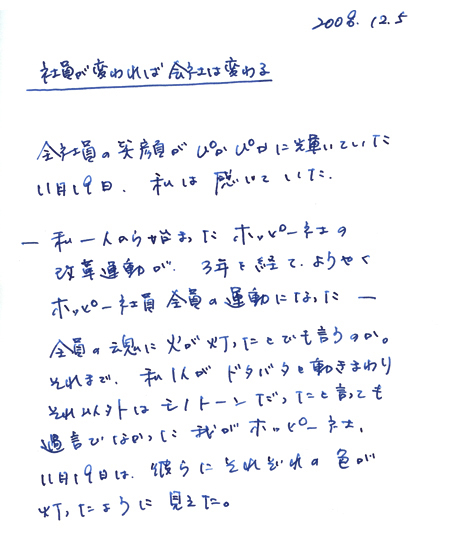 2008.12.5
社員が変われば会社は変わる
全社員の笑顔がぴかぴかに輝いていた
11月19日、私は感じていた。
― 私一人から始まったホッピー社の
改革運動が、3年を経て、ようやく
ホッピー社員全員の運動になった ―
全員の魂に火が灯ったとでも言うのか。
それまで、私1人がドタバタと動きまわり
それ以外はモノトーンだったと言っても
過言でなかった我がホッピー社、
11月19日は、彼らにそれぞれの色が
灯ったように見えた。